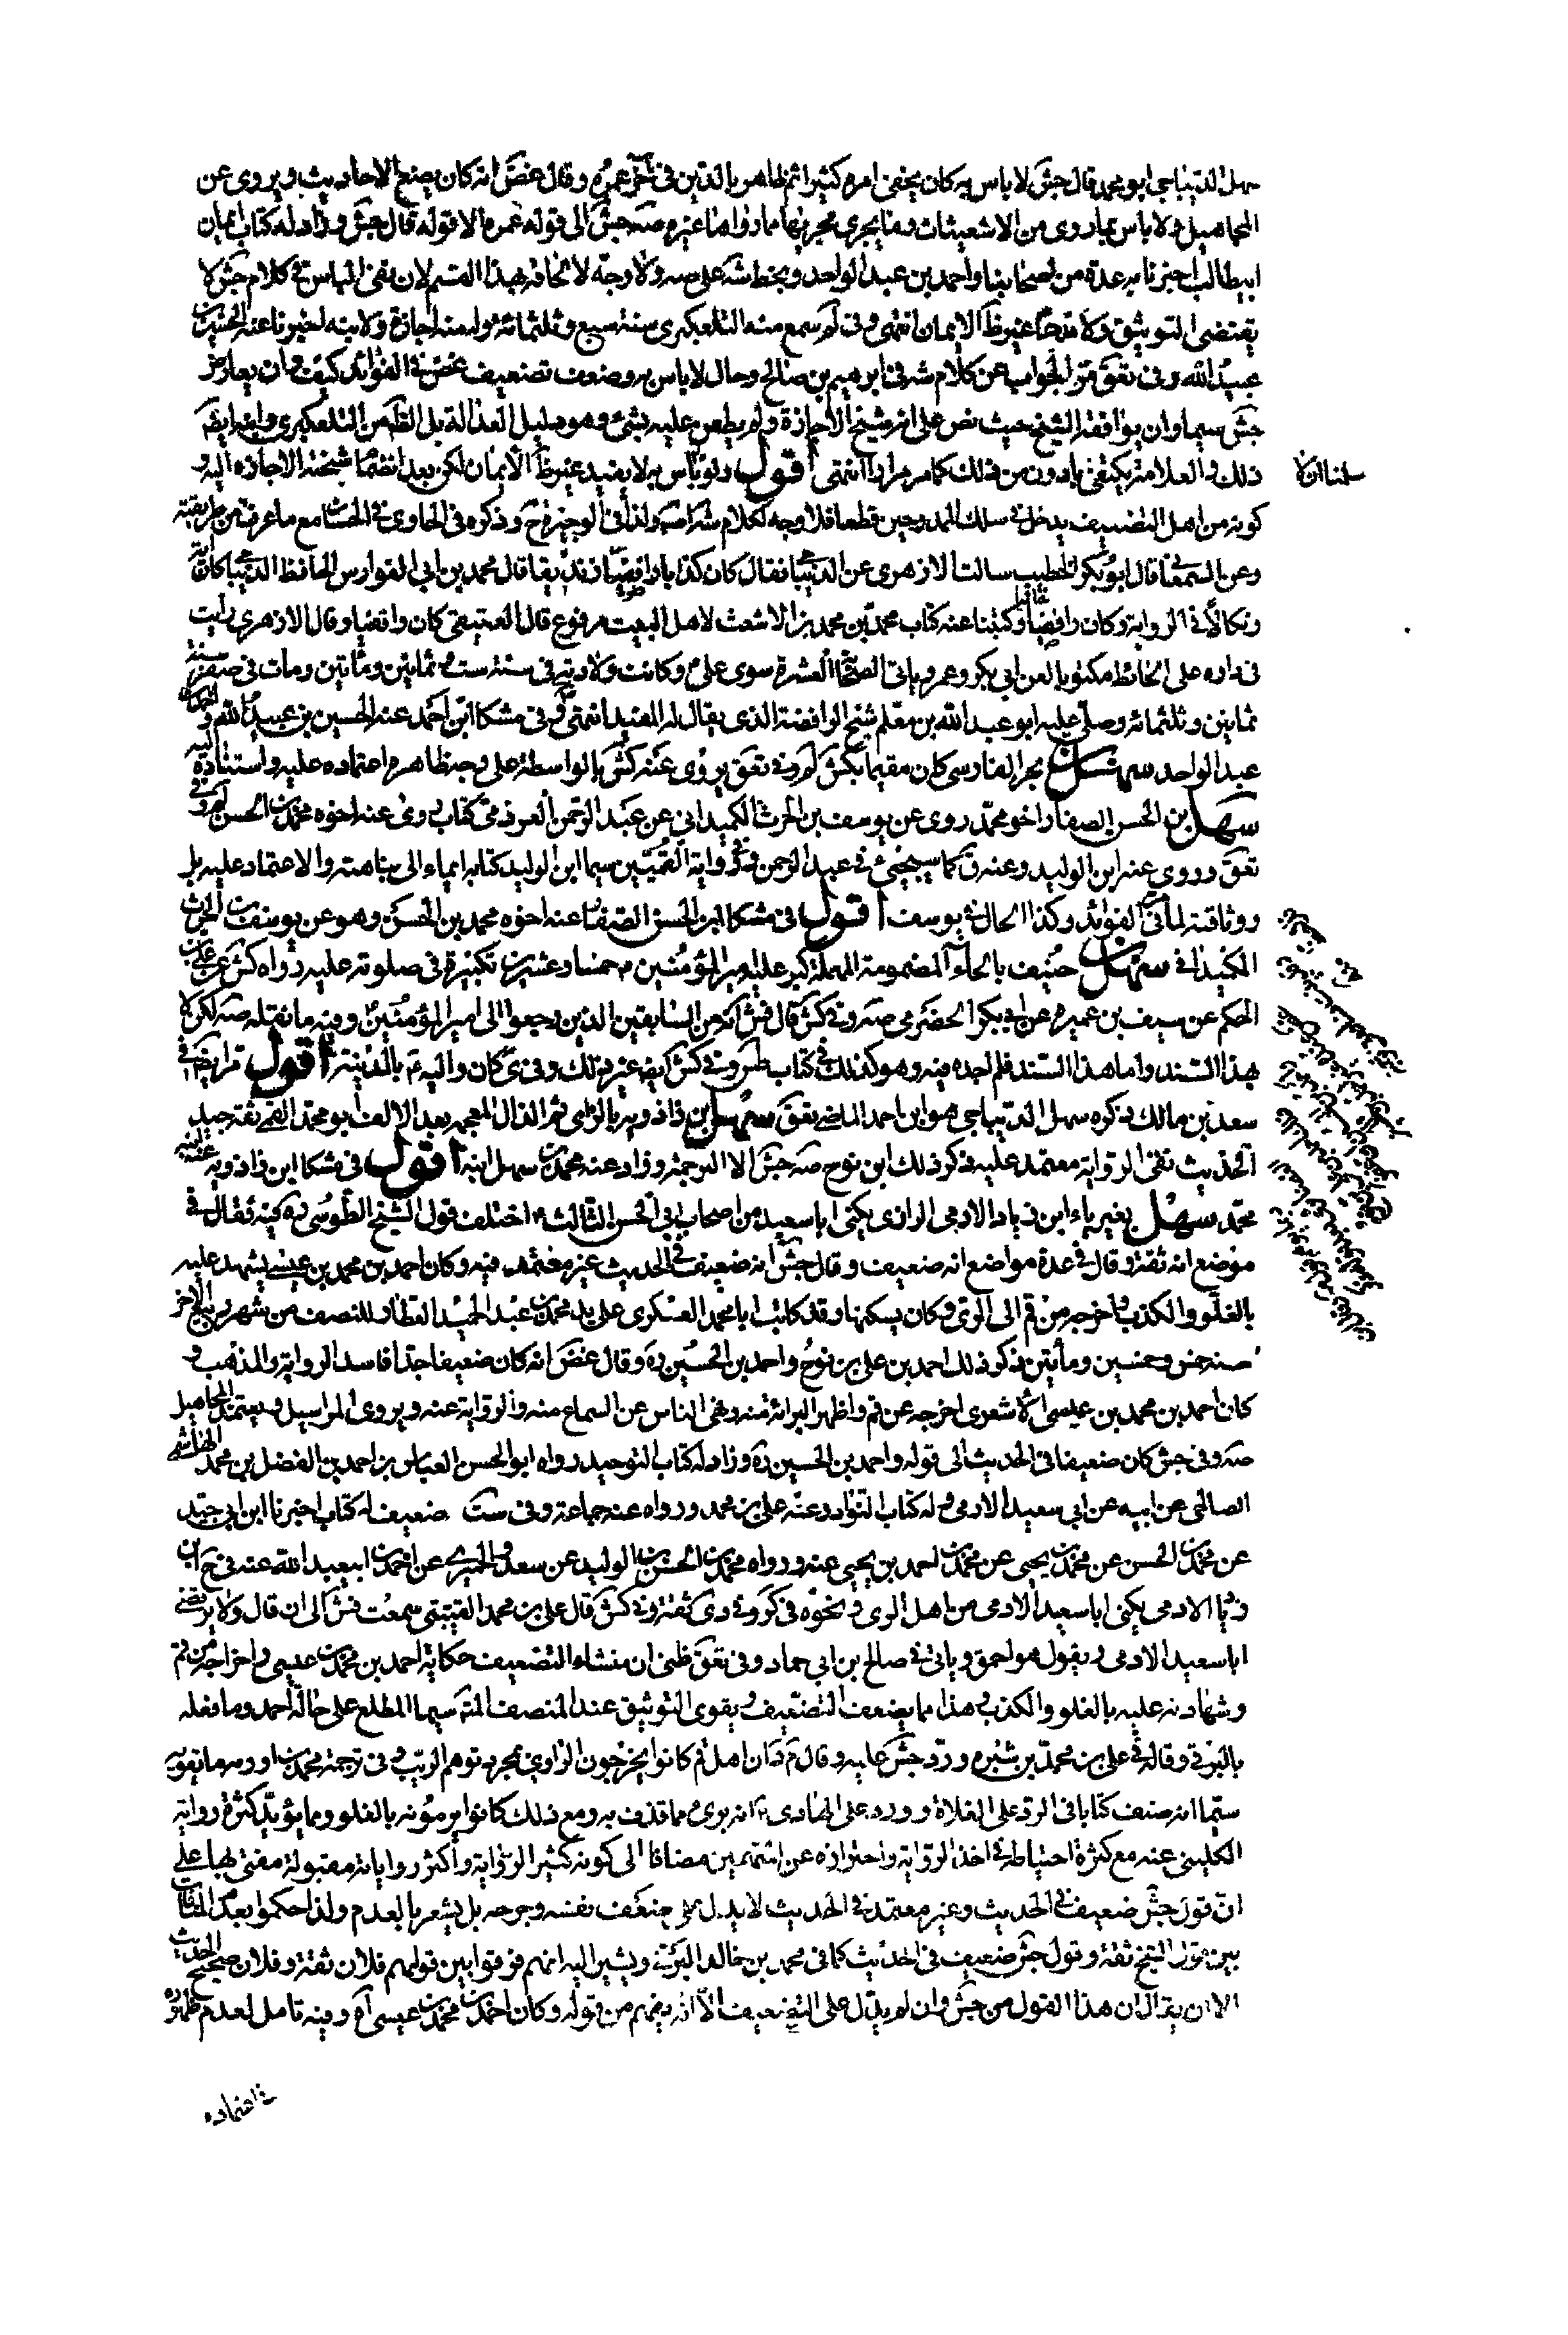 سهل الديباجي ابو محمد قال جش لا باس به كان يخفي امره كثيرا ثم ظاهر بالدين في آخر عمره وقال غض انه كان يضع الاحاديث ويروى عن
المجاهيل ولا باس بما روى من الاشعثيات وما يجرى مجريها مما رواه غيره صه جش الى قوله عمره الا قوله قال جش وزاد له كتاب ايمان
ابيطالب اخبرنا به عدة من اصحابنا واحمد بن عبد الواحد وبخط شه على صه ولا وجه لالحاقه بهذا القسم لان نفى الباس في كلام جش لا
يقتضى التوثيق ولا مدحا غير ظ الايمان انتهى وفي لم سمع منه التلعكبرى سنة سبع وثلثمائة وله منه اجازة ولابنه اخبرنا عنه الحسين بن
عبيد الله وفي تعق مر الجواب عن كلام شه في ابرهيم بن صالح وحال لا باس به وضعف تضعيف غض في الفوائد كيف وان يعارض
جش سيما وان يوافقه الشيخ حيث نص على انه شيخ الاجازة ولم يطعن عليه بشئ وهو دليل العدالة بل الظ من التلعكبرى وابنه ايضا
ذلك والعلامة يكتفى بادون من ذلك كما مر مرارا انتهى اقول ولا باس به لا يفيد غير ظ الايمان لكن بعد انضمام شيخية الاجازة اليه و
كونه من اهل التصنيف يدخل في سلك الممدوحين قطعا فلا وجه لكلام شه اصلا ولذا في الوجيزة ح وذكره في الحاوى في الحسان مع ما عرفت من طريقته
وعن السمعاني قال ابو بكر الخطيب سالت الازهرى عن الديباجي فقال كان كذابا رافضيا زنديقا قال محمد بن ابي الفوارس الحافظ الديباجي كان آية
ونكالا في الرواية وكان رافضيا غاليا وكتبنا عنه كتاب محمد بن محمد بن الاشعث لاهل البيت مرفوع قال العتيقي كان رافضيا وقال الازهرى رايت
في داره على الحائط مكتوبا لعن ابي بكر وعمر وباقي الصحابة العشرة سوى على ع وكانت ولادته في سنة ست وثمانين ومائتين ومات في صفر سنة
ثمانين وثلثمائة وصلى عليه ابو عبد الله بن معلم شيخ الرافضة الذى يقال له المفيد انتهى وفي مشكا ابن احمد عنه الحسين بن عبيد الله واحمد بن
عبد الواحد سهل بن بحر الفارسي كان مقيما بكش لم وفي تعق يروى عنه كش بالواسطة على وجه ظاهره اعتماده عليه واستناده اليه
سهل بن الحسن الصفار اخو محمد روى عن يوسف بن الحرث الكميدانى عن عبد الرحمن العرزمي كتابه روى عنه اخوه محمد بن الحسن لم وفي
تعق وروى عنه ابن الوليد وعنه ق كما سيجئ في عبد الرحمن وفي رواية القميين سيما ابن الوليد كتابه ايماء الى نباهته والاعتماد عليه بل
ووثاقته لما في الفوائد وكذا الحال في يوسف اقول في مشكا ابن الحسن الصفار عنه اخوه محمد بن الحسن وهو عن يوسف بن الحرث
الكميدانى سهل بن حنيف بالحاء المضمومة المهملة كبر عليه امير المؤمنين ع خمسا وعشرين تكبيرة في صلوته عليه رواه كش عن على بن
الحكم عن سيف بن عميرة عن ابي بكر الحضرمي صه وفي كش قال فش انه من السابقين الذين رجعوا الى امير المؤمنين ع وفيه ما نقله صه لكن لا
بهذا السند واما هذا السند فلم اجده فيه وهو كذلك في كتاب طس وفي كش ايضا غير ذلك وفي ى كان واليه ع بالمدينة اقول مر ايضا في
سعد بن مالك ذكره سهل الديباجي هو ابن احمد الماضي تعق سهل بن زاذويه بالزاى ثم الذال المعجمة بعد الالف ابو محمد القمي ثقة جيد
الحديث نقى الرواية معتمد عليه ذكر ذلك ابن نوح صه جش الا الترجمة وزاد عنه محمد بن سهل ابنه اقول في مشكا ابن زاذويه عنه ابنه
محمد سهل بغير ياء ابن زياد الادمي الرازى يكنى ابا سعيد من اصحاب ابي الحسن الثالث ع اختلف قول الشيخ الطوسي ره فيه فقال في
موضع انه ثقة وقال في عدة مواضع انه ضعيف وقال جش انه ضعيف في الحديث غير معتمد فيه وكان احمد بن محمد بن عيسى يشهد عليه
بالغلو والكذب واخرجه من قم الى الرى وكان يسكنها وقد كاتب ابا محمد العسكرى على يد محمد بن عبد الحميد العطار للنصف من شهر ربيع الاخر
سنة خمس وخمسين ومأتين ذكر ذلك احمد بن على بن نوح واحمد بن الحسين ره وقال غض انه كان ضعيفا جدا فاسد الرواية والمذهب و
كان احمد بن محمد بن عيسى الاشعرى اخرجه عن قم واظهر البرائة منه ونهى الناس عن السماع منه والرواية عنه ويروى المراسيل ويعتمد المجاهيل
صه وفي جش كان ضعيفا في الحديث الى قوله واحمد بن الحسين ره وزاد له كتاب التوحيد رواه ابو الحسن العباس بن احمد بن الفضل بن محمد الهاشمي
الصالحى عن ابيه عن ابي سعيد الادمي وله كتاب النوادر عنه على بن محمد ورواه عنه جماعة وفي ست ضعيف له كتاب اخبرنا ابن ابي جيد
عن محمد بن الحسن عن محمد بن يحيى عن محمد بن احمد بن يحيى عنه ورواه محمد بن الحسن بن الوليد عن سعد والحميرى عن احمد بن ابيعبد الله عنه في ج ابن
زياد الادمي يكنى ابا سعيد الادمي من اهل الرى ونحوه في كر وفي دى ثقة وفي كش قال على بن محمد القتيبي سمعت فش الى ان قال ولا يرتضى
ابا سعيد الادمي ويقول هو احمق وياتي في صالح بن ابي حماد وفي تعق ظني ان منشاء التضعيف حكاية احمد بن محمد بن عيسى واخراجه من قم
وشهادته عليه بالغلو والكذب هذا مما يضعف التضعيف ويقوى التوثيق عند المنصف المتم سيما المطلع على حالة احمد وما فعله
بالبرقي وقاله في على بن محمد بن شيره ورد جش عليه وقال م د ان اهل قم كانوا يخرجون الراوي بمجرد توهم الريب وفي ترجمة محمد بن اورمه ما يقويه
سيما انه صنف كتابا في الرد على الغلاة وورد عن الهادى ع انه برئ مما قذف به ومع ذلك كانوا يرمونه بالغلو ومما يؤيد كثرة رواية
الكليني عنه مع كثرة احتياطه في اخذ الرواية واحترازه عن المتهمين مضافا الى كونه كثير الرواية واكثر رواياته مقبولة مفتى بها على
ان قول جش ضعيف في الحديث وغير معتمد في الحديث لا يدل على ضعف نفسه وجرحه بل يشعر بالعدم ولذا حكموا بعدم المنافاة
بين قول الشيخ ثقة وقول جش ضعيف في الحديث كما في محمد بن خالد البرقي ويشير اليه انهم فرقوا بين قولهم فلان ثقة وفلان صحيح الحديث
الا ان يقال ان هذا القول من جش وان لم يدل على التضعيف الا انه يفهم من قوله وكان احمد بن محمد بن عيسى آه وفيه تامل لعدم ظهوره
في اعتماده